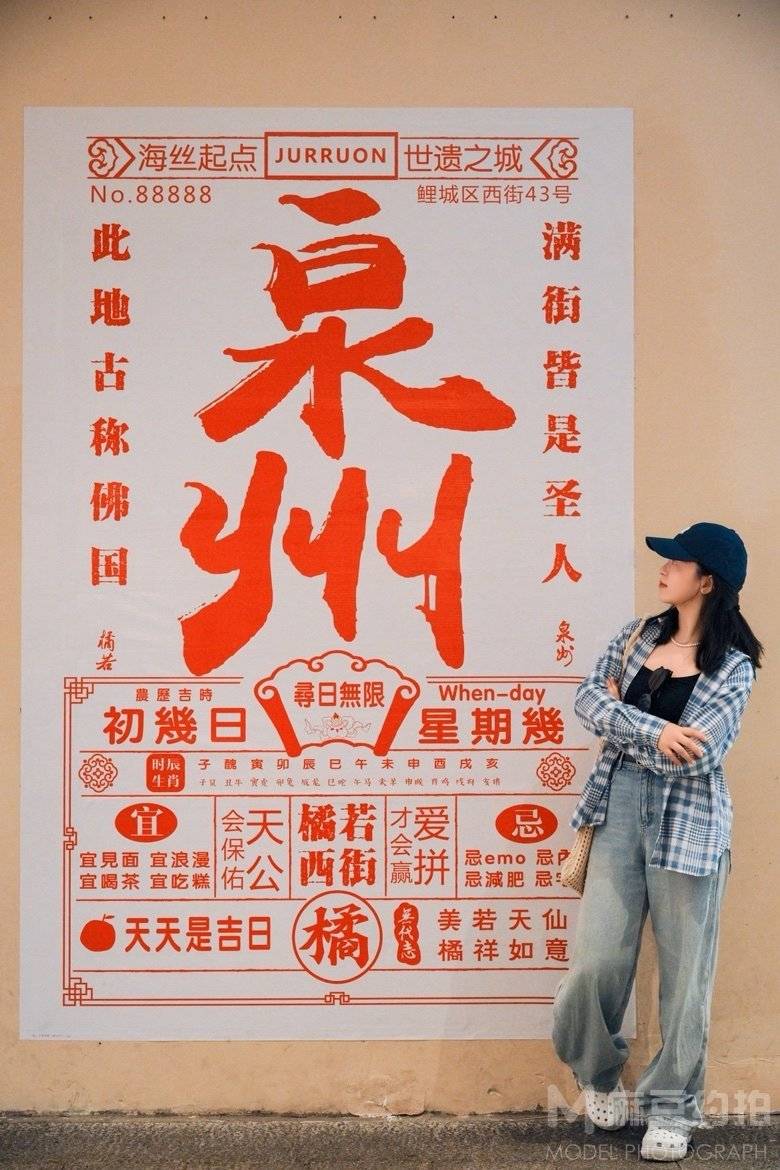 海丝起点 JURRUON 世遗之城
No.88888 鲤城区西街43号
此地古称佛国
橘若
泉州
满街皆是圣人
泉州
農歷吉時
初幾日
尋日無限
When-day
星期幾
时辰
生肖
子醜寅卯辰巳午未申酉戌亥
宜
宜見面 宜浪漫
宜喝茶 宜吃糕
天公
会保佑
橘若
西街
爱拼
才会赢
忌
忌emo 忌
忌減肥 忌
天天是吉日
橘
美若天仙
橘祥如意
麻豆约拍
MODEL PHOTOGRAPH